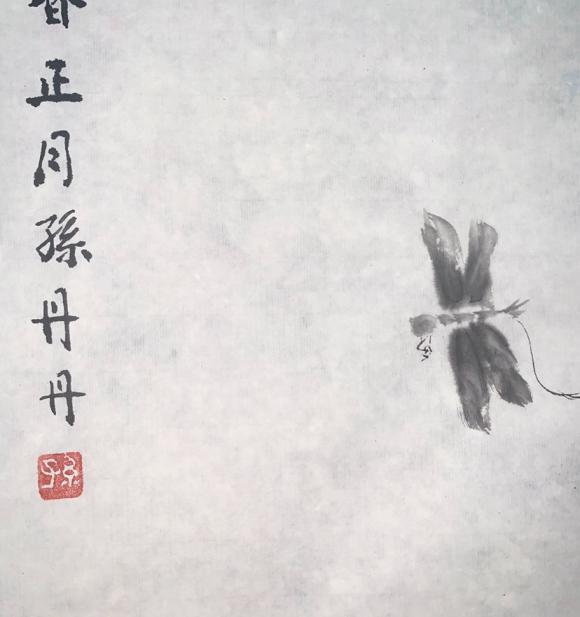 春正月孫丹丹
孫